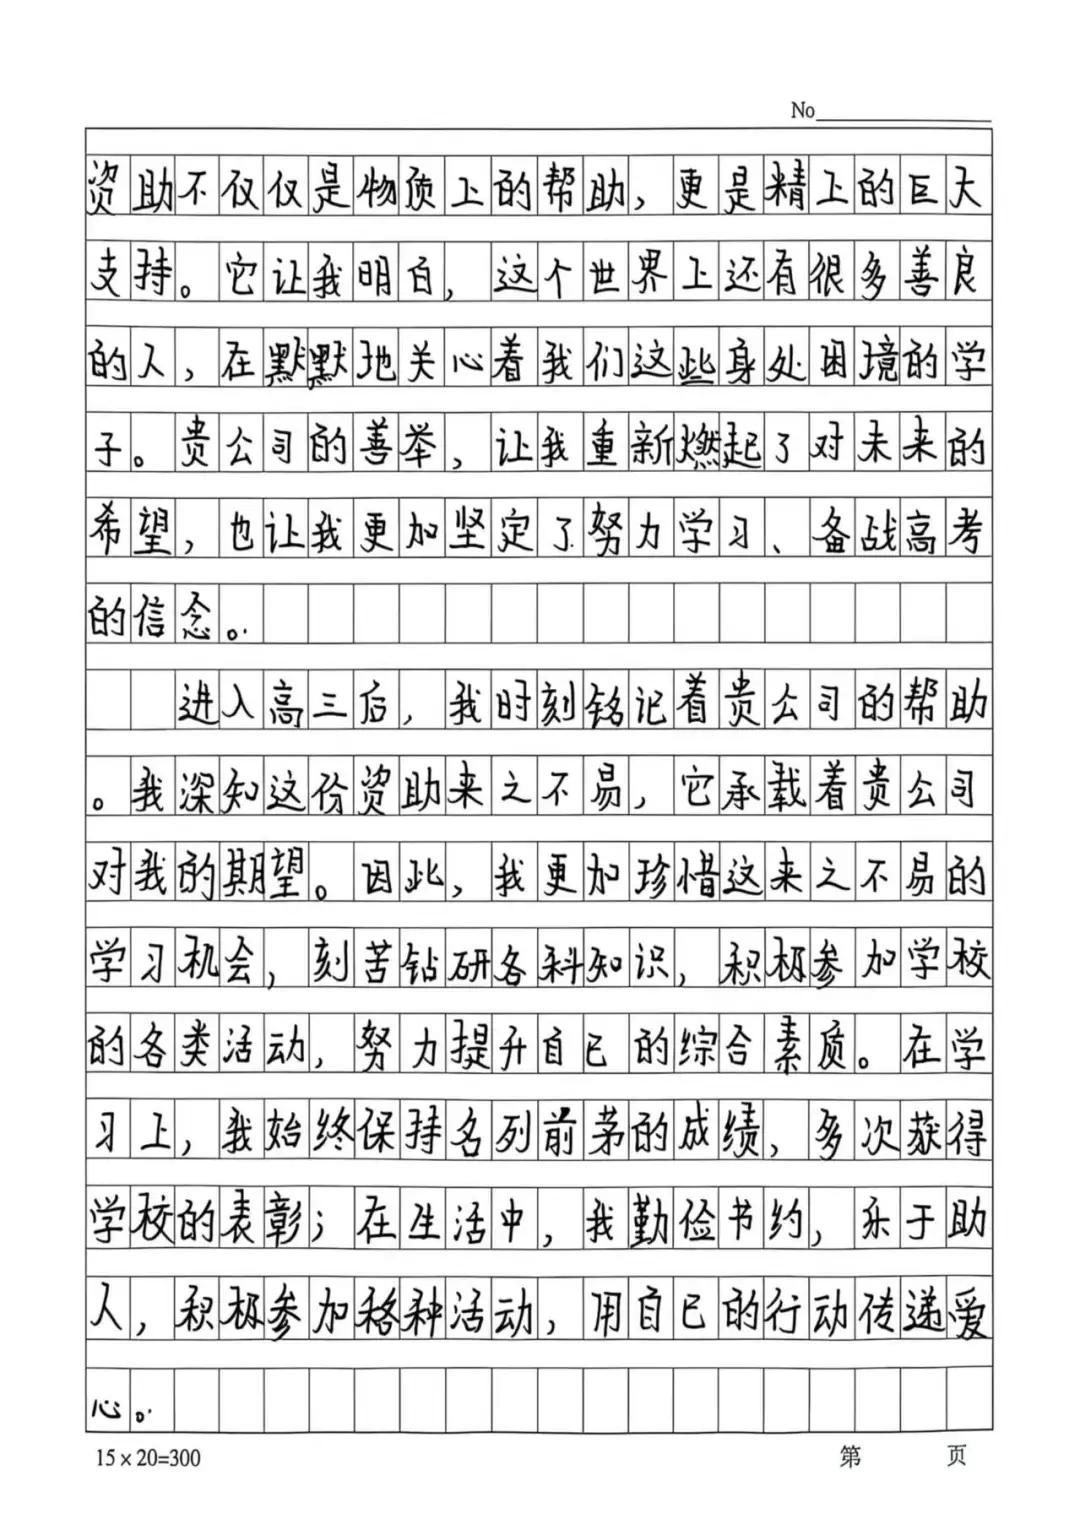 No
资助不仅仅是物质上的帮助，更是精上的巨大
支持。它让我明白，这个世界上还有很多善良
的人，在默默地关心着我们这些身处困境的学
子。贵公司的善举，让我重新燃起了对未来的
希望，也让我更加坚定了努力学习、备战高考
的信念。
进入高三后，我时刻铭记着贵公司的帮助
。我深知这份资助来之不易，它承载着贵公司
对我的期望。因此，我更加珍惜这来之不易的
学习机会，刻苦钻研各科知识，积极参加学校
的各类活动，努力提升自己的综合素质。在学
习上，我始终保持名列前茅的成绩，多次获得
学校的表彰；在生活中，我勤俭节约，乐于助
人，积极参加各种活动，用自己的行动传递爱
心。
15×20=300 第 页